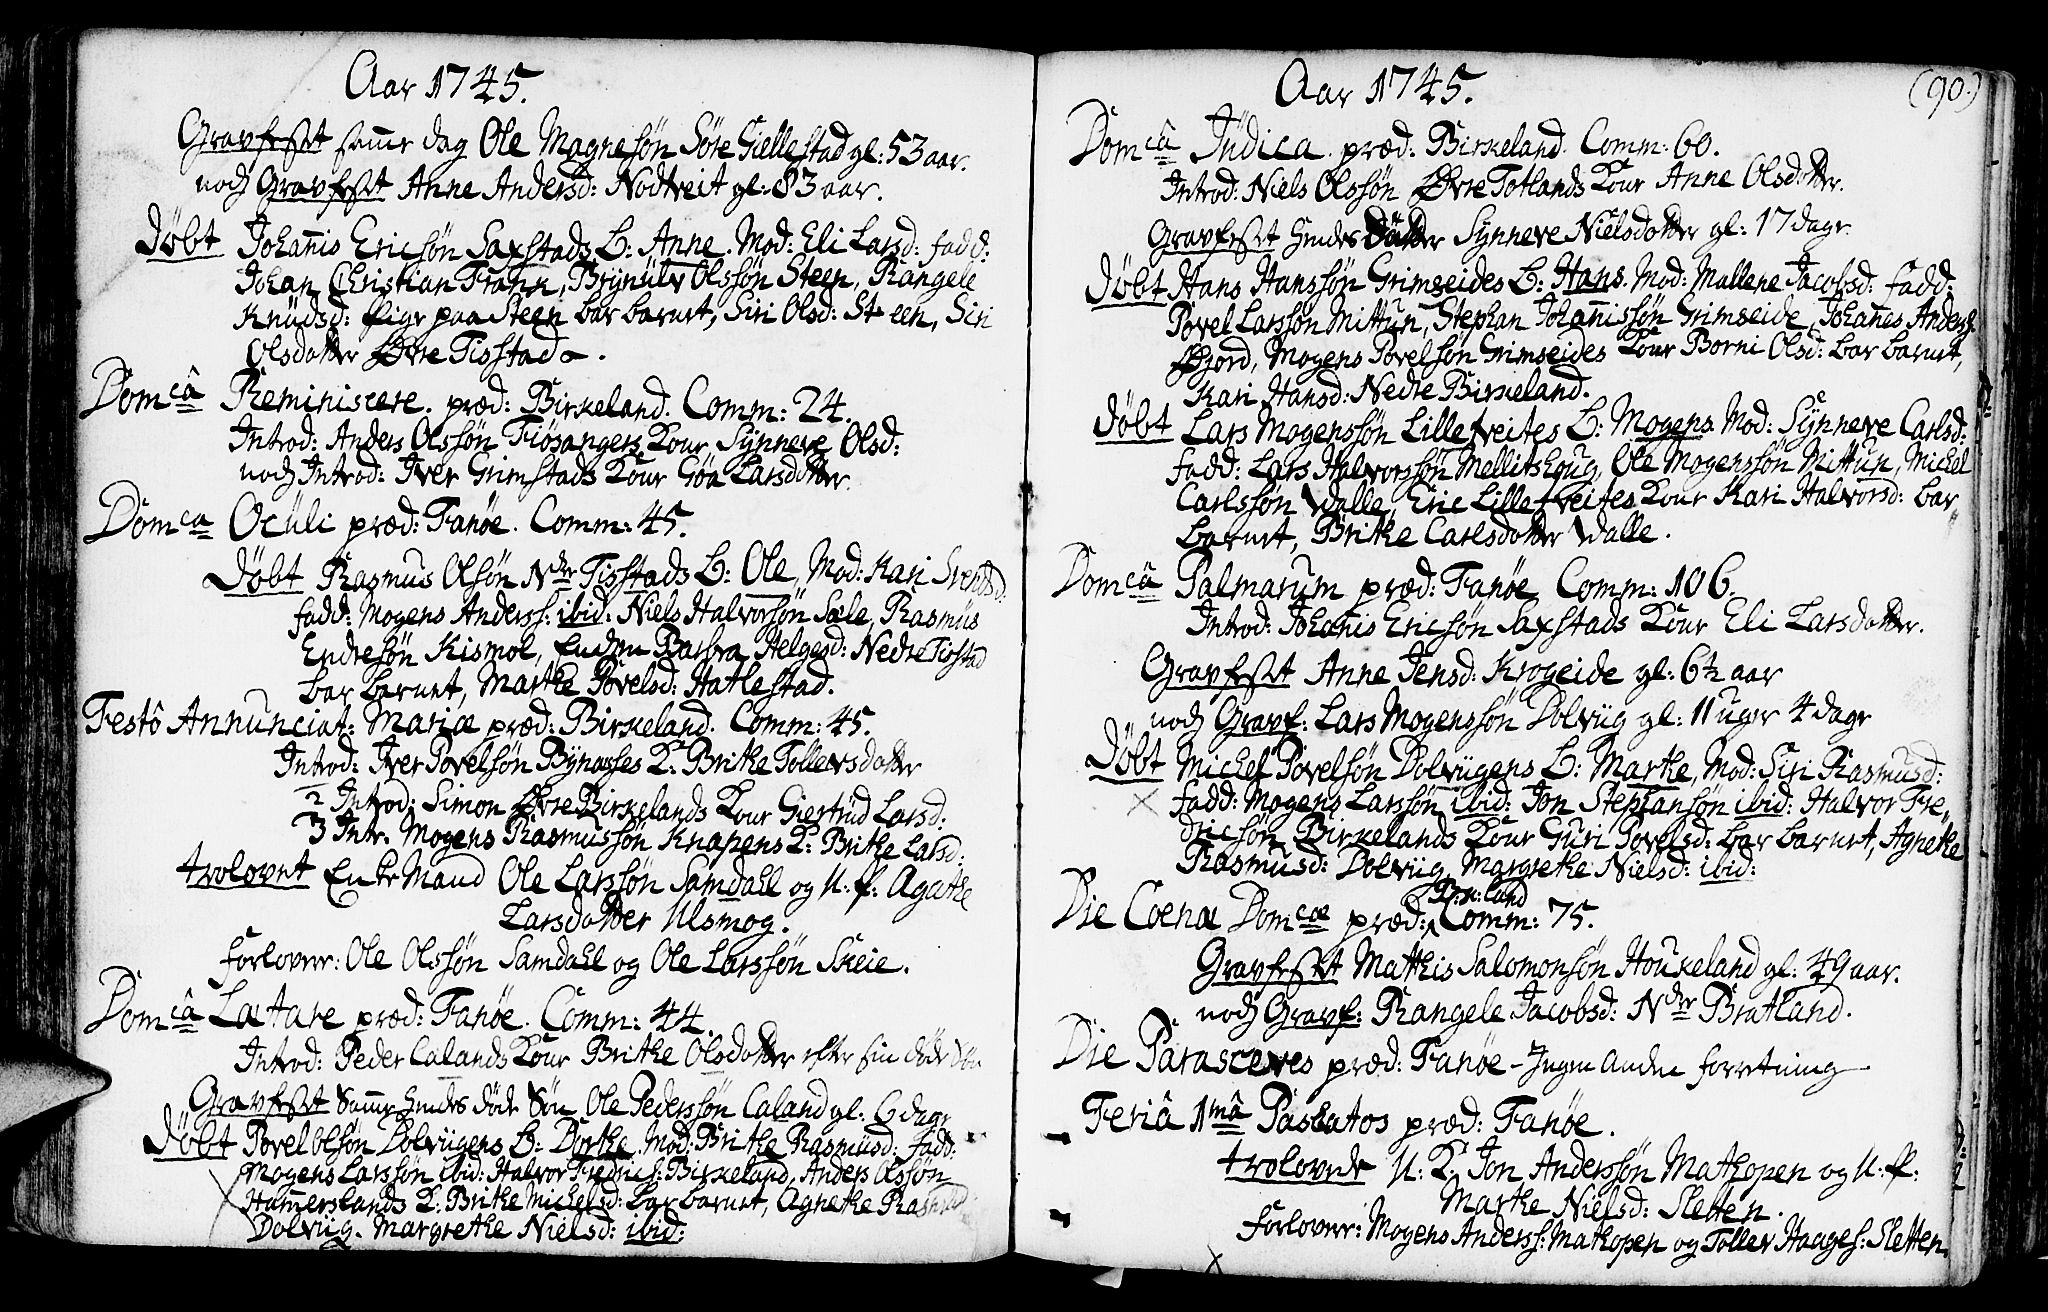 Aar 1745.
Gravfæstet samme dag Ole Magnesøn Søre Giellestad gl: 53 aar.
nock Gravfæstet Anne Andersd: Nodtveit gl: 83 aar.
Døbt Johannis Ericsøn Saxstads B: Anne. Mod: Eli Larsd: fadd:
Johan Christian Frann, Brynülv Olssøn Steen, Rangele
Knüdsd: Pige paa Steen bar barnet, Siri Olsd: Steen, Siri
Olsdatter Øvre Tisstad.
Domca Reminiscere. præd: Birkeland. Comm: 24.
Introd: Anders Olssøn Fiøsangers Kone Synneve Olsd:
nock Introd: Iver Grimstads Kone Göa Larsdatter.
Domca Oculi præd: Fanøe. Comm: 45.
Døbt Rasmus Olsøn Ndre Tisstads B: Ole, Mod: Kari Svendsd:
fadd: Mogens Anderss: ibid: Niels Halvorsøn Sæle, Rasmus
Endresøn Kismol, Enchen Barbra Helgesd: Nedre Tisstad
bar barnet, Marthe Povelsd: Hatlestad.
Festô Annunciat: Mariæ præd: Birkeland. Comm: 45.
Introd: Iver Povelsøn Bynæsses K: Brithe Tollevsdatter
2 Introd: Simon Øvre Birkelands Kone Giertrüd Larsd:
3 Intr. Mogens Rasmussøn Knapens K: Brithe Larsd:
trolovet Enke Mand Ole Larssøn Samdahl og U. P: Agathe
Larsdatter Ulsmog.
Forlover: Ole Olssøn Samdahl og Ole Larssøn Skeie.
Domcâ Lætare præd: Fanøe. Comm: 44.
Introd: Peder Calands Kone Brithe Olsdatter efter sin døde Søn
Gravfæstet Samme hendes døde Søn Ole Pederssøn Caland gl: 6 dage
Døbt Povel Olsøn Dolviigens B: Dorthe. Mod: Brithe Rasmusd: fadd:
Mogens Larssøn ibid: Halvor Fredrics: Birkeland, Anders Olssøn
Hammerslands K: Brithe Michelsd: bar barnet, Agnethe Rasmusd:
Dolviig. Margrethe Nielsd: ibid:
Aar 1745.
(90.)
Domcâ Jüdica. præd: Birkeland. Comm: 60.
Introd: Niels Olssøn Øvre Totlands Kone Anne Olsdatter.
Gravfæstet hendes Datter Synneve Nielsdatter gl: 17 dage
Døbt Hans Hanssøn Grimseides B: Hans. Mod: Mallene Jacobsd: fadd:
Povel Larssøn Mittun, Stephan Johannissøn Grimseide, Johannes Anders:
Øjord, Mogens Povelsøn Grimseides Kone Borni Olsd: bar barnet,
Kari Hansd: Nedre Birkeland.
Døbt Lars Mogenssøn Lilletveites B: Mogens Mod: Synneve Carlsd:
fadd: Lars Halvorssøn Mellitshoug, Ole Mogenssøn Mittun, Michel
Carlssøn Walle, Eric Lilletveites Kone Kari Halvorsd: bar
barnet, Brithe Carlsdatter Walle.
Domcâ Palmarum præd: Fanøe Comm: 106.
Introd: Johannis Ericsøn Saxstads Kone Eli Larsdatter.
Gravfæstet Anne Jensd: Krogeide gl: 6½ aar
nock Gravf: Lars Mogenssøn Dolviig gl: 11 uger 4 dage
Døbt Michel Povelsøn Dolviigens B: Marthe, Mod: Siri Rasmusd:
fadd: Mogens Larssøn ibid: Jon Stephansøn ibid: Halvor Fre,
dricsøn Birkelands Kone Guri Povelsd: bar barnet, Agnethe
Rasmusd: Dolviig, Margrethe Nielsd: ibid:
Birkeland
Die Coenæ Domcæ præd: Comm: 75.
Gravfæstet Mathis Salomonsøn Houkeland gl: 49 aar.
nock Gravf: Rangele Jacobsd: Ndre Bratland.
Die Parasceves præd: Fanøe - Ingen Anden forretning
Feriâ 1mâ Paschatos præd: Fanøe.
trolovede U. K. Jon Anderssøn Mathopen og U. P:
Marthe Nielsd: Sletten.
Forlover: Mogens Anderss: Mathopen og Tollev Haages: Sletten.